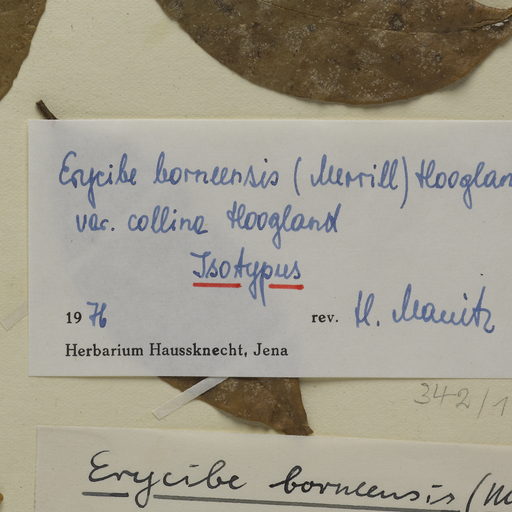 Erycibe borneensis (Merrill) Hooglan
var. collina Hoogland
Isotypus
1976 rev. H. Manitz
Herbarium Haussknecht, Jena
342/1
Erycibe borneensis (M